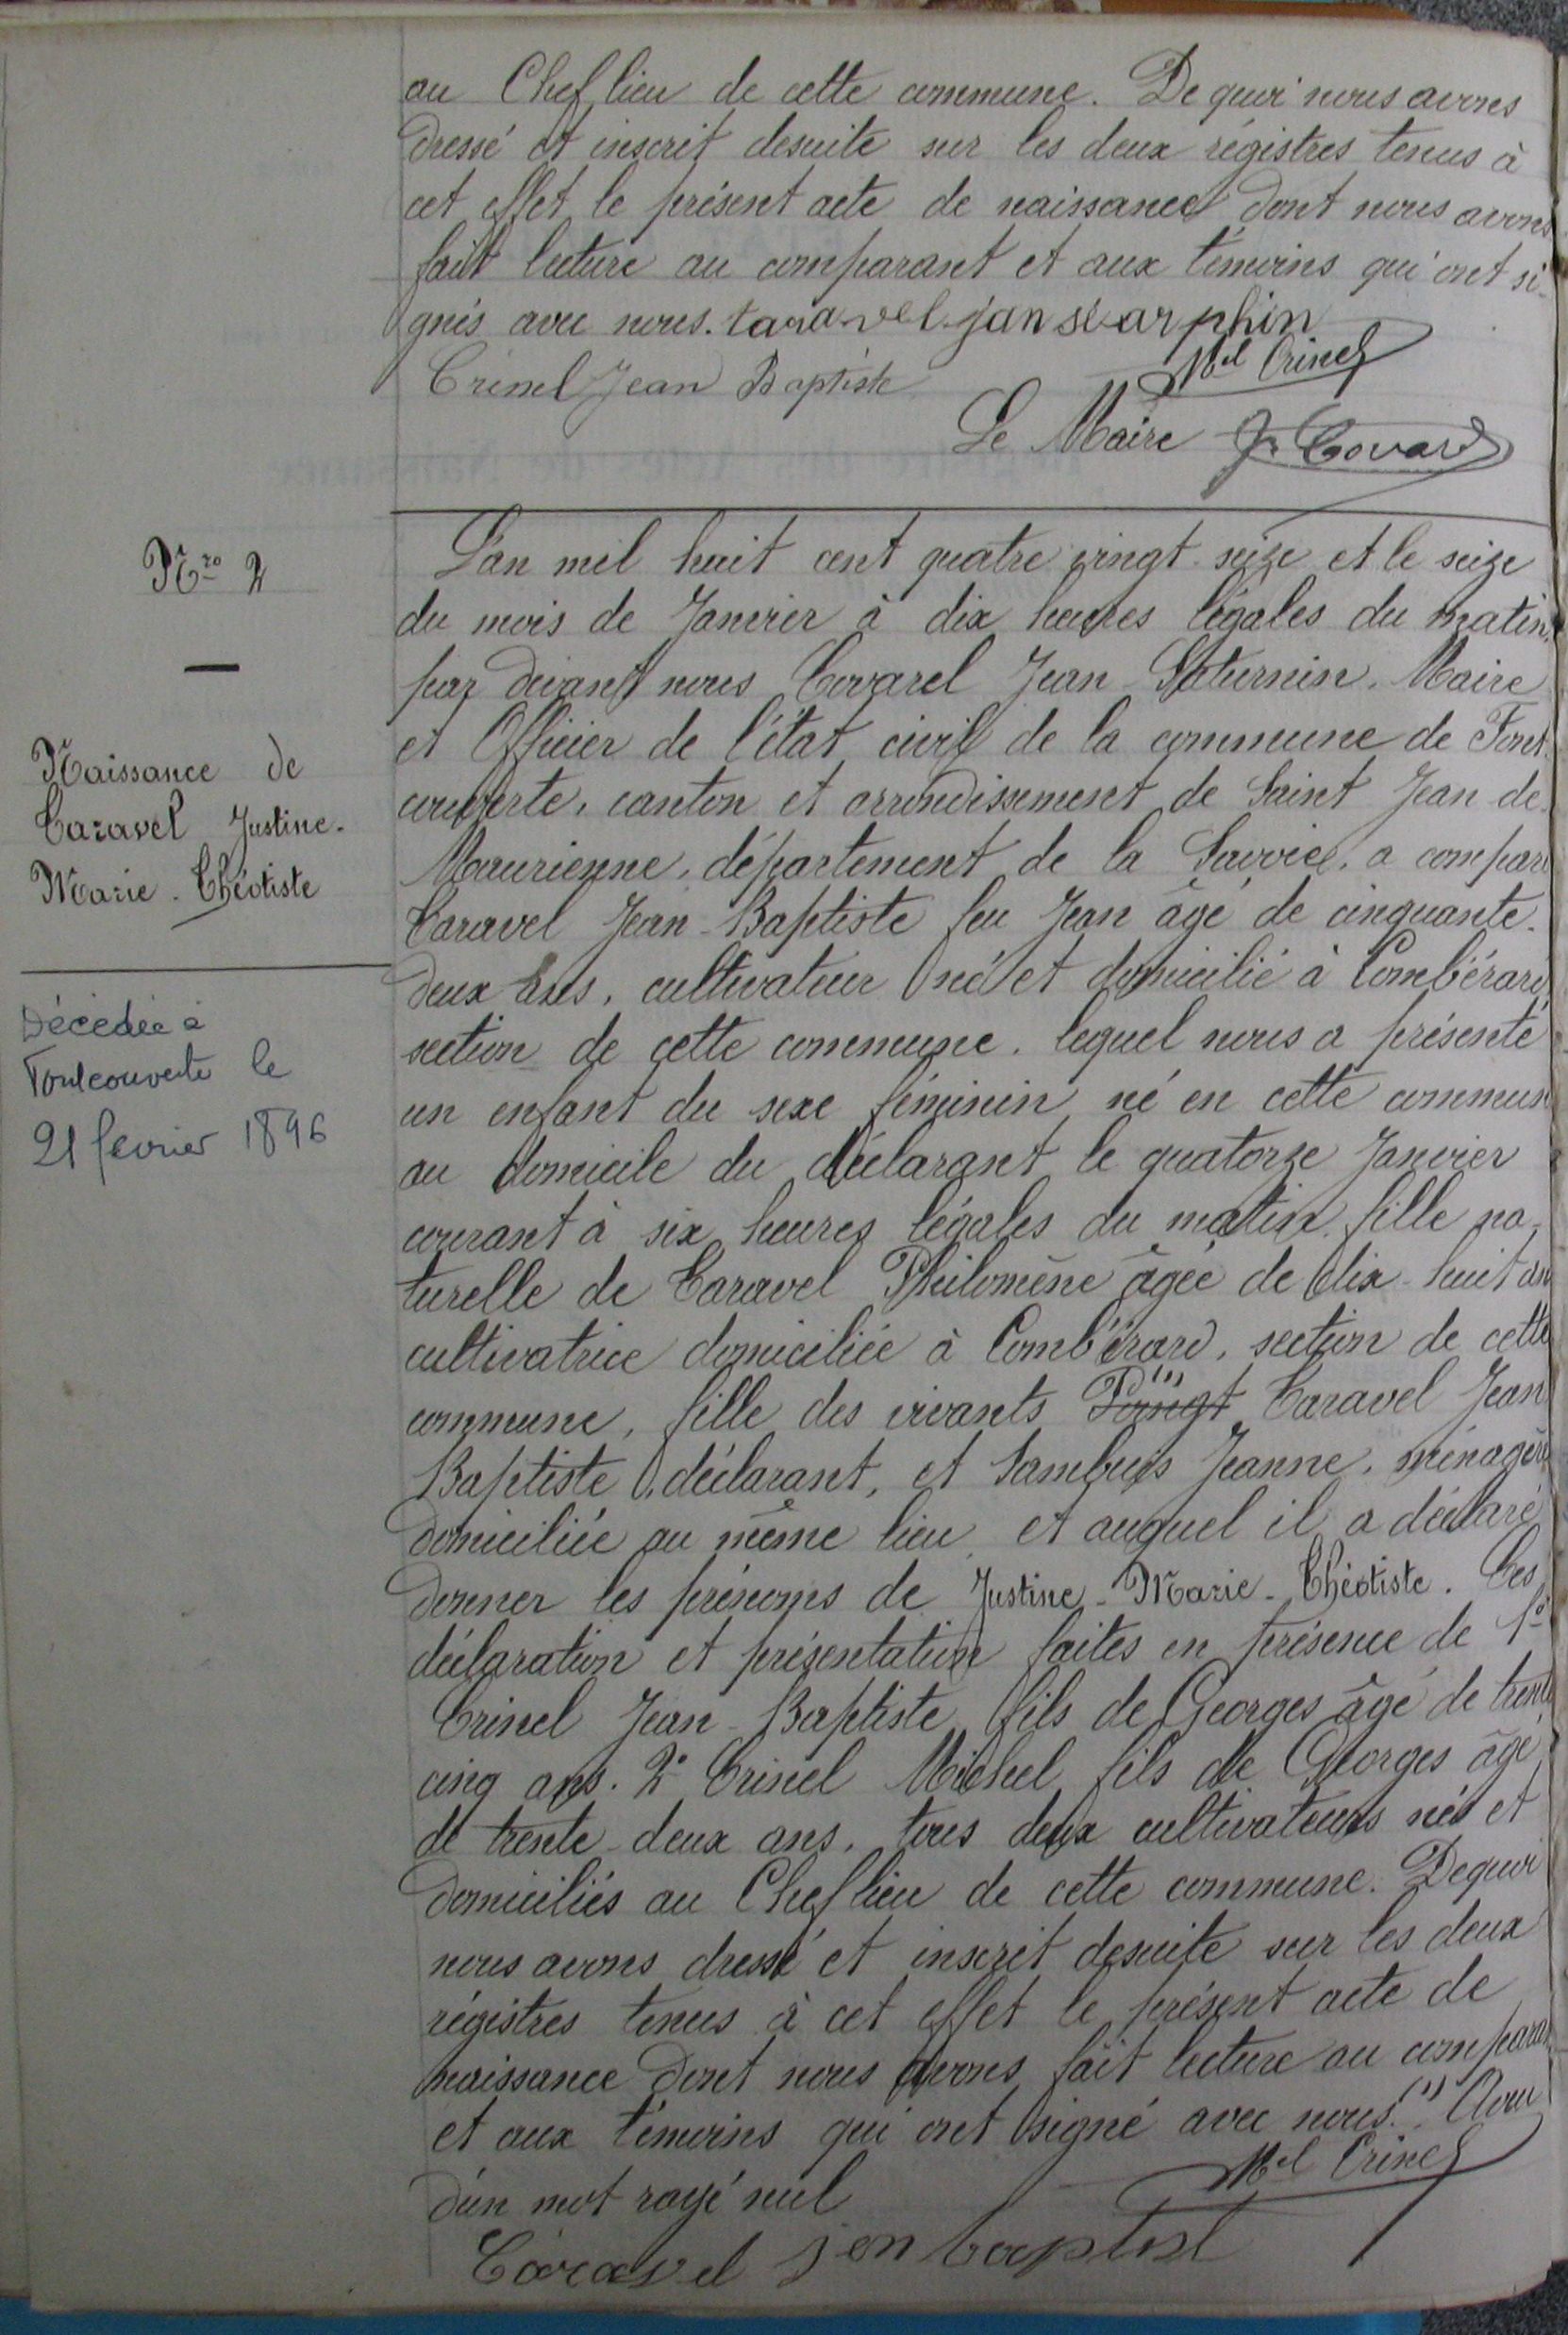 au Chef lieu de cette commune. De quoi nous avons
dressé et inscrit desuite sur les deux régistres tenus à
cet effet le présent acte de naissance dont nous avons
fait lecture au comparant et aux témoins qui ont si-
gnés avec nous. taravel jan séarphin
Trinel Jean Baptiste Mel Trinel
Le Maire J. Covarel
Nro 2
Naissance de
Taravel Justine-
Marie-Théotiste
Décédée à
Fontcouverte le
21 février 1896
L'an mil huit cent quatre vingt-seize et le seize
du mois de Janvier à dix heures légales du matin,
par devant nous Covarel Jean-Saturnin, Maire
et Officier de l'état civil de la commune de Font-
couverte, canton et arrondissement de Saint Jean de
Maurienne, département de la Savoie, a comparu
Taravel Jean-Baptiste feu Jean âgé de cinquante-
deux ans, cultivateur né et domicilié à Combérard,
section de cette commune, lequel nous a présenté
un enfant du sexe féminin né en cette commune
au domicile du déclarant le quatorze Janvier
courant à six heures légales du matin, fille na-
turelle de Taravel Philomène âgée de dix-huit ans
cultivatrice domiciliée à Combérard, section de cette
commune, fille des vivants (1) Taravel Jean
Baptiste, déclarant, et Sambuis Jeanne, ménagère
domiciliée au même lieu, et auquel il a déclaré
donner les prénoms de Justine-Marie-Théotiste. Ces
déclaration et présentation faites en présence de 1º
Trinel Jean-Baptiste fils de Georges âgé de trente
cinq ans. 2º Trinel Michel fils de Georges âgé
de trente-deux ans, tous deux cultivateurs nés et
domiciliés au Chef lieu de cette commune. De quoi
nous avons dressé et inscrit desuite sur les deux
régistres tenus à cet effet le présent acte de
naissance dont nous avons fait lecture au comparant
et aux témoins qui ont signé avec nous. (1)
d'un mot rayé nul Mel Trinel
Taravel jen baptist